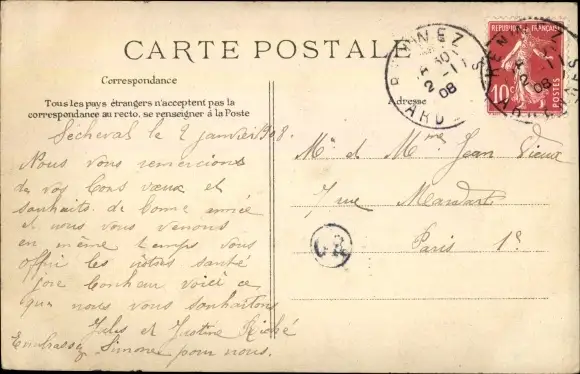 CARTE POSTALE
Correspondance
Tous les pays étrangers n'acceptent pas la
correspondance au recto, se renseigner à la Poste
Adresse
REPUBLIQUE FRANÇAISE
10c
POSTES
2 -1
08
ARD
2 -1
08
Sécheval le 2 janvier 1908.
Nous vous remercions
de vos bons vœux et
souhaits de bonne année
et nous vous venons
en même temps vous
offrir les nôtres santé
joie bonheur voici ce
que nous vous souhaitons
Jules et Justine Riché
Embrassez Simone pour nous.
Mr et Mme Jean Vieux
7 rue Mandart
Paris 1e